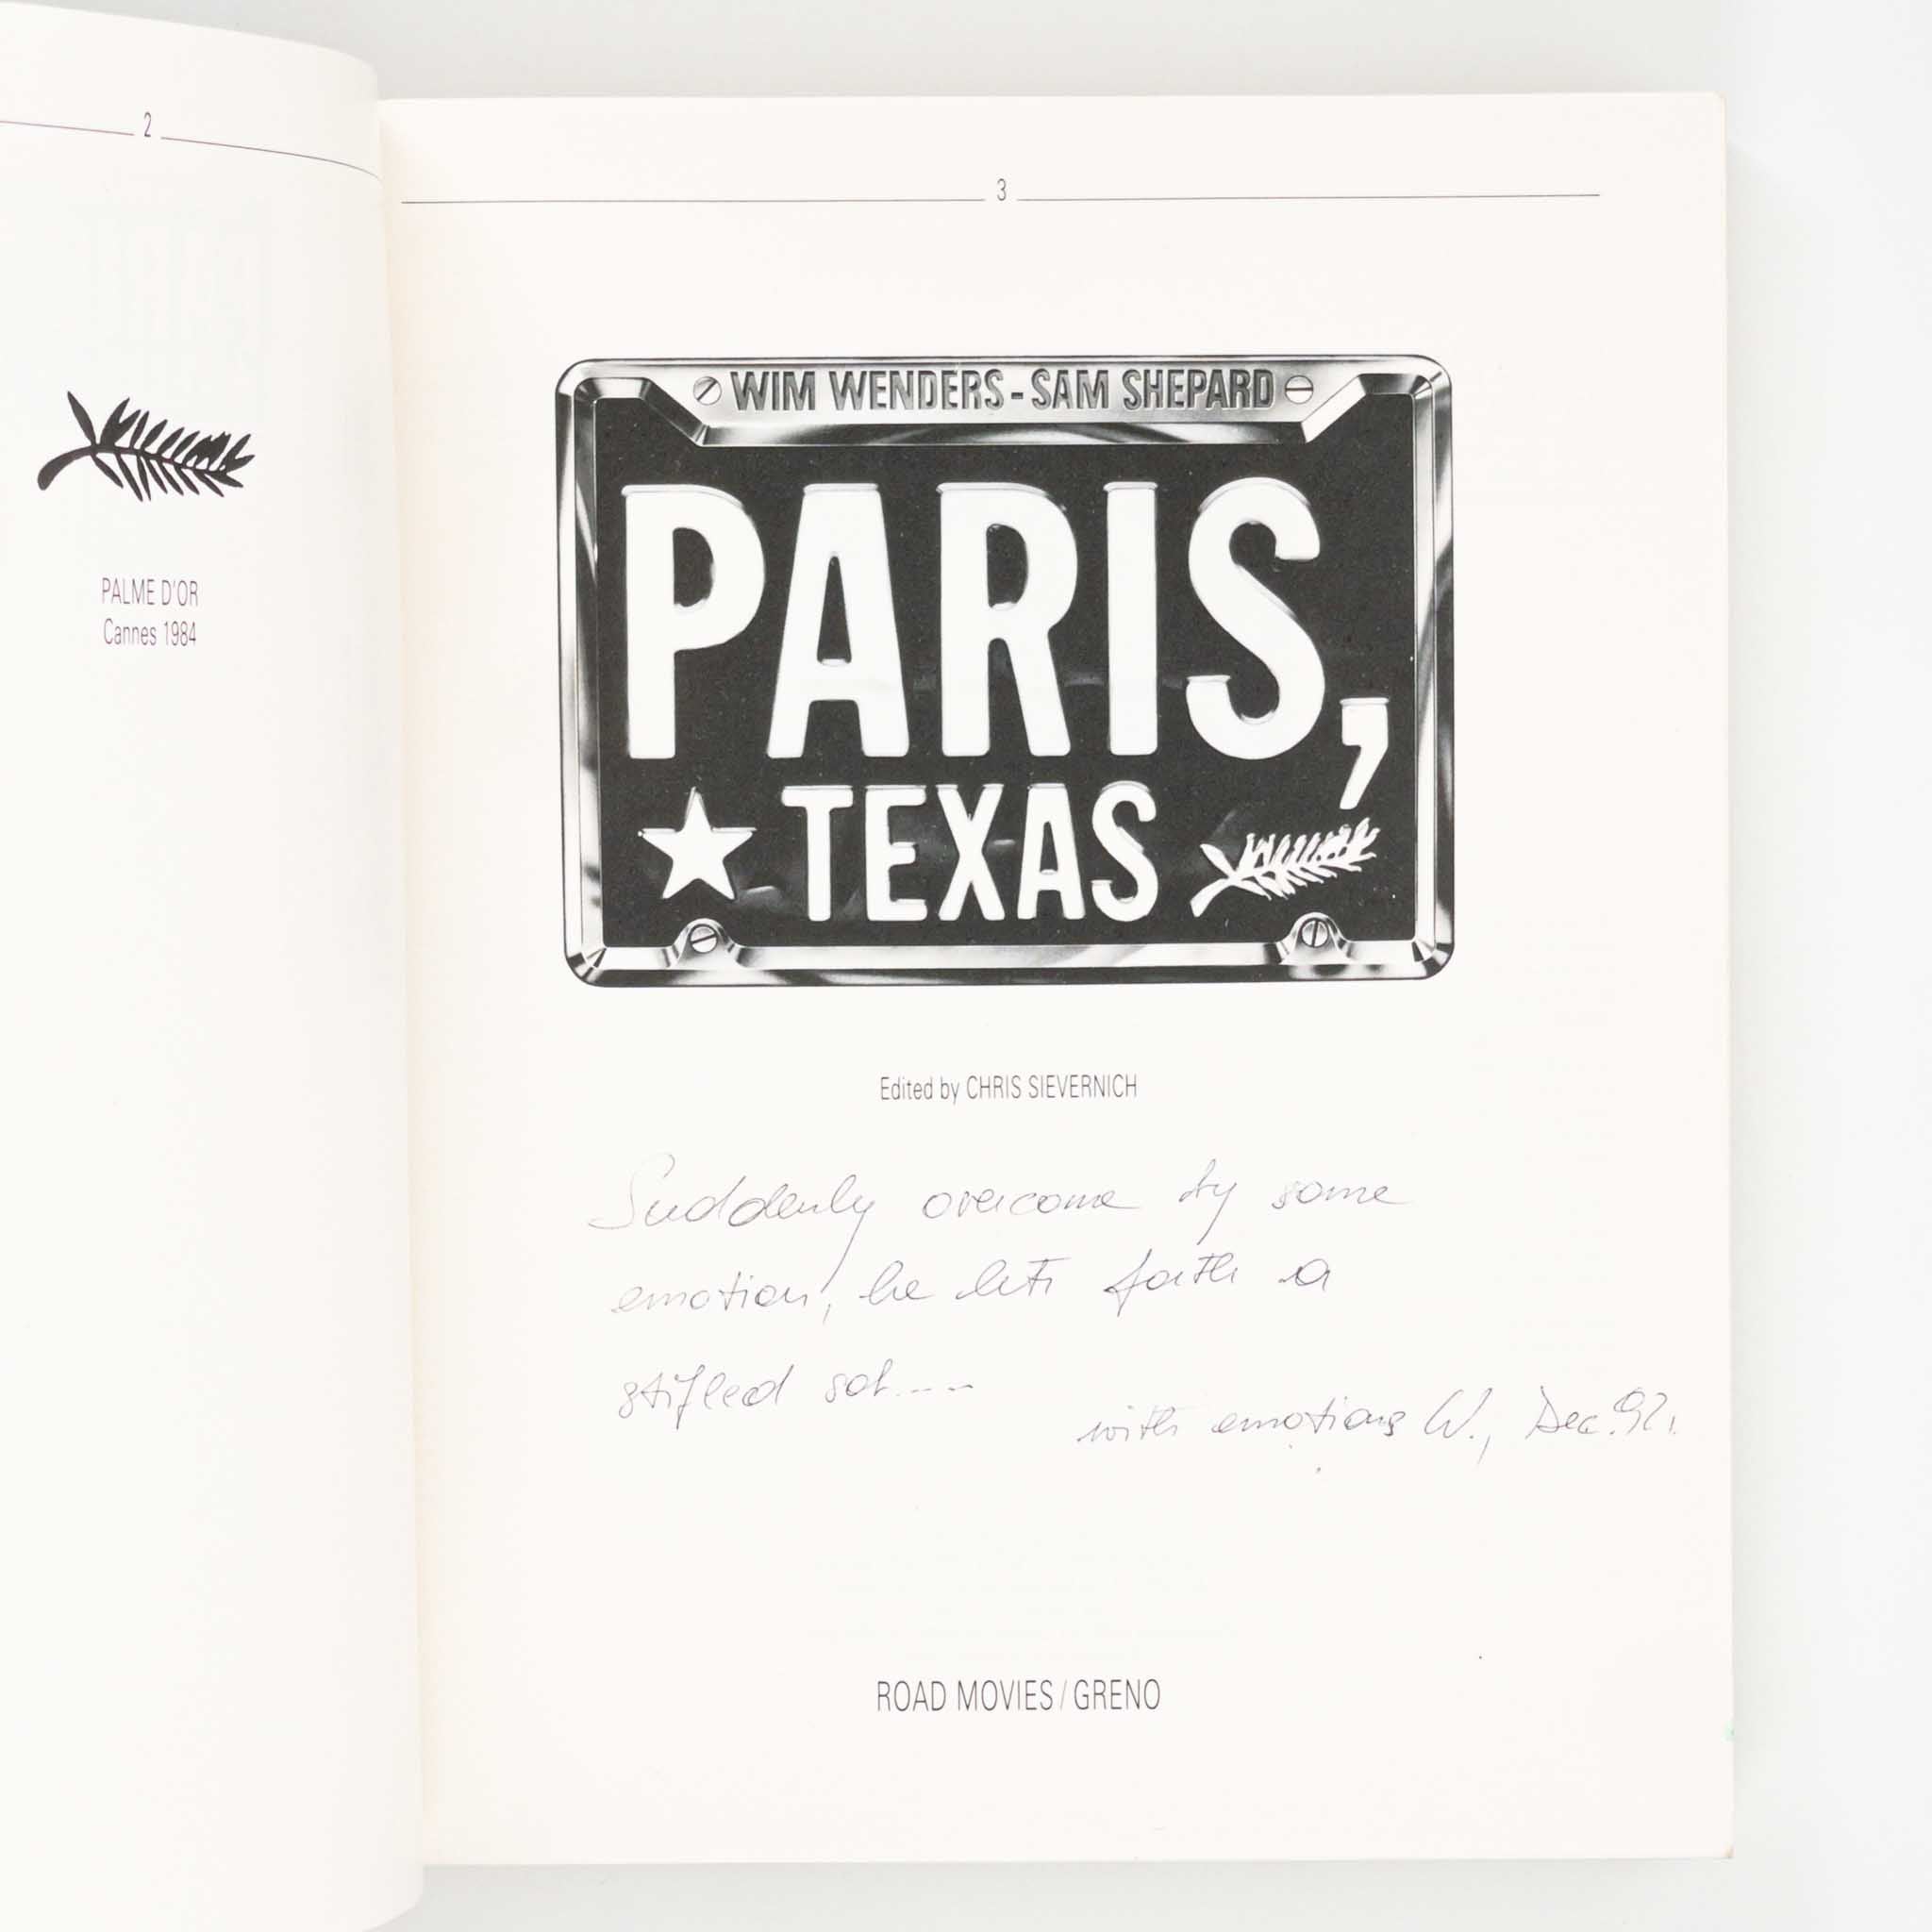 2
PALME D'OR
Cannes 1984
3
WIM WENDERS - SAM SHEPARD
PARIS,
TEXAS
Edited by CHRIS SIEVERNICH
Suddenly overcome by some
emotion, he lets forth a
stifled sob....
with emotions W., Dec. 92.
ROAD MOVIES / GRENO